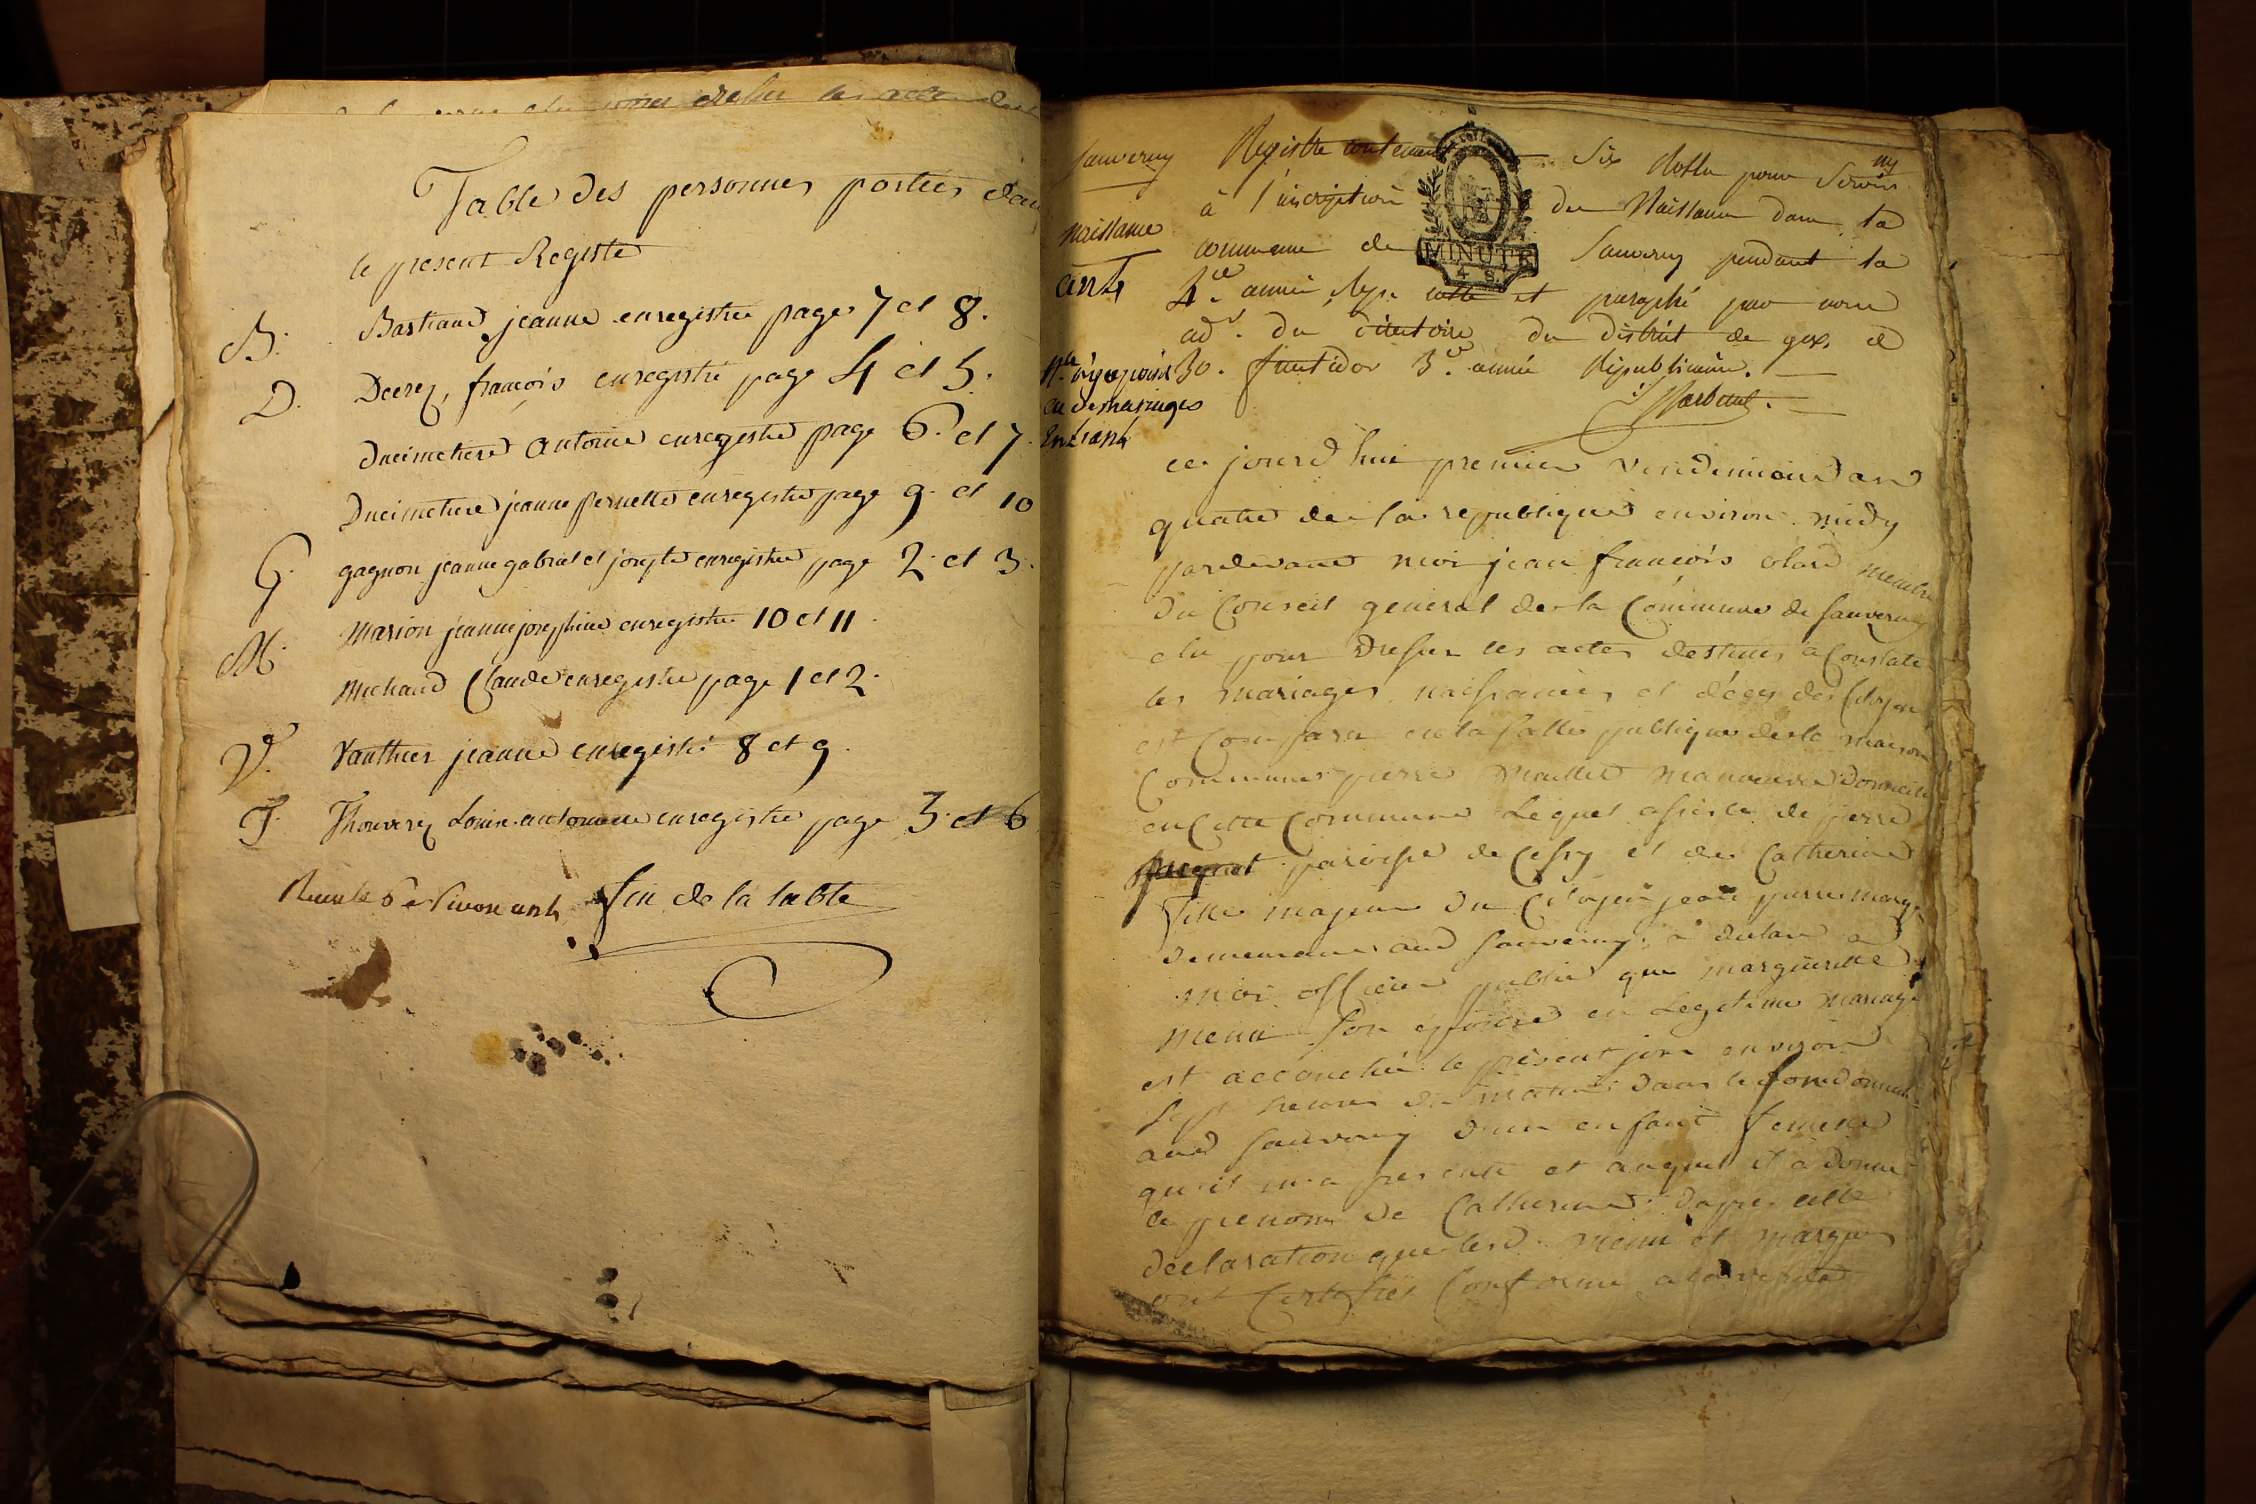 Table des personnes portées dans
le present Registre
B. Bastiand jeanne enregistrée page 7 et 8.
D. Dcerez, françois enregistré page 4 et 5.
Ducimetiere antoine enregistré page 6. et 7.
Ducimetiere jeanne pernette enregistrée page 9. et 10
G. gagnon jeanne gabriel et josephe enregistrée page 2. et 3.
M. Marion jeanne josephine enregistrée 10 et 11.
Michaud Claude enregistré page 1 et 2.
V. Vauthier jeanne enregistré 8 et 9.
T. Thouverez Louise antoinette enregistrée page 5. et 6
fin de la table
Sauverny
Naissance
an 4
Registre contenant six
à l'inscription des Naissance dans la
commune de Sauverny pendant la
4.e année Rep. cotté et paraphé par nous
ad.r du directoire du district de gex, le
30. fructidor 3.e année Républicaine.
MINUTE
4 S.
il n'y a point
eu de mariages
en l'an 4
ce jourd'hui premier vendemiaire an
quatre de la republique environ midy
pardevant moi jean françois membre
du Conseil general de la Commune de Sauverny
elu pour dresser les actes destinés a Constater
les mariages, naissances et décès des Citoyens
est Comparu en la salle publique de la maison
Commune pierre manoeuvre domicilié
en Cette Commune Lequel assisté de pierre
paroisse de Cessy et de Catherine
fille majeure du Citoyen jean pierre
demeurant aud Sauverny, a declaré a
moi officier public que marguerite
menu son epouse en Legitime mariage
est accouchée le present jour environ
sept heures du matin dans
aud Sauverny d'un enfant femelle
qu'il m'a presenté et auquel il a donné
le prenom de Catherine. d'après cette
declaration que lesd. menu et
ont Certifiés Conforme a la verité